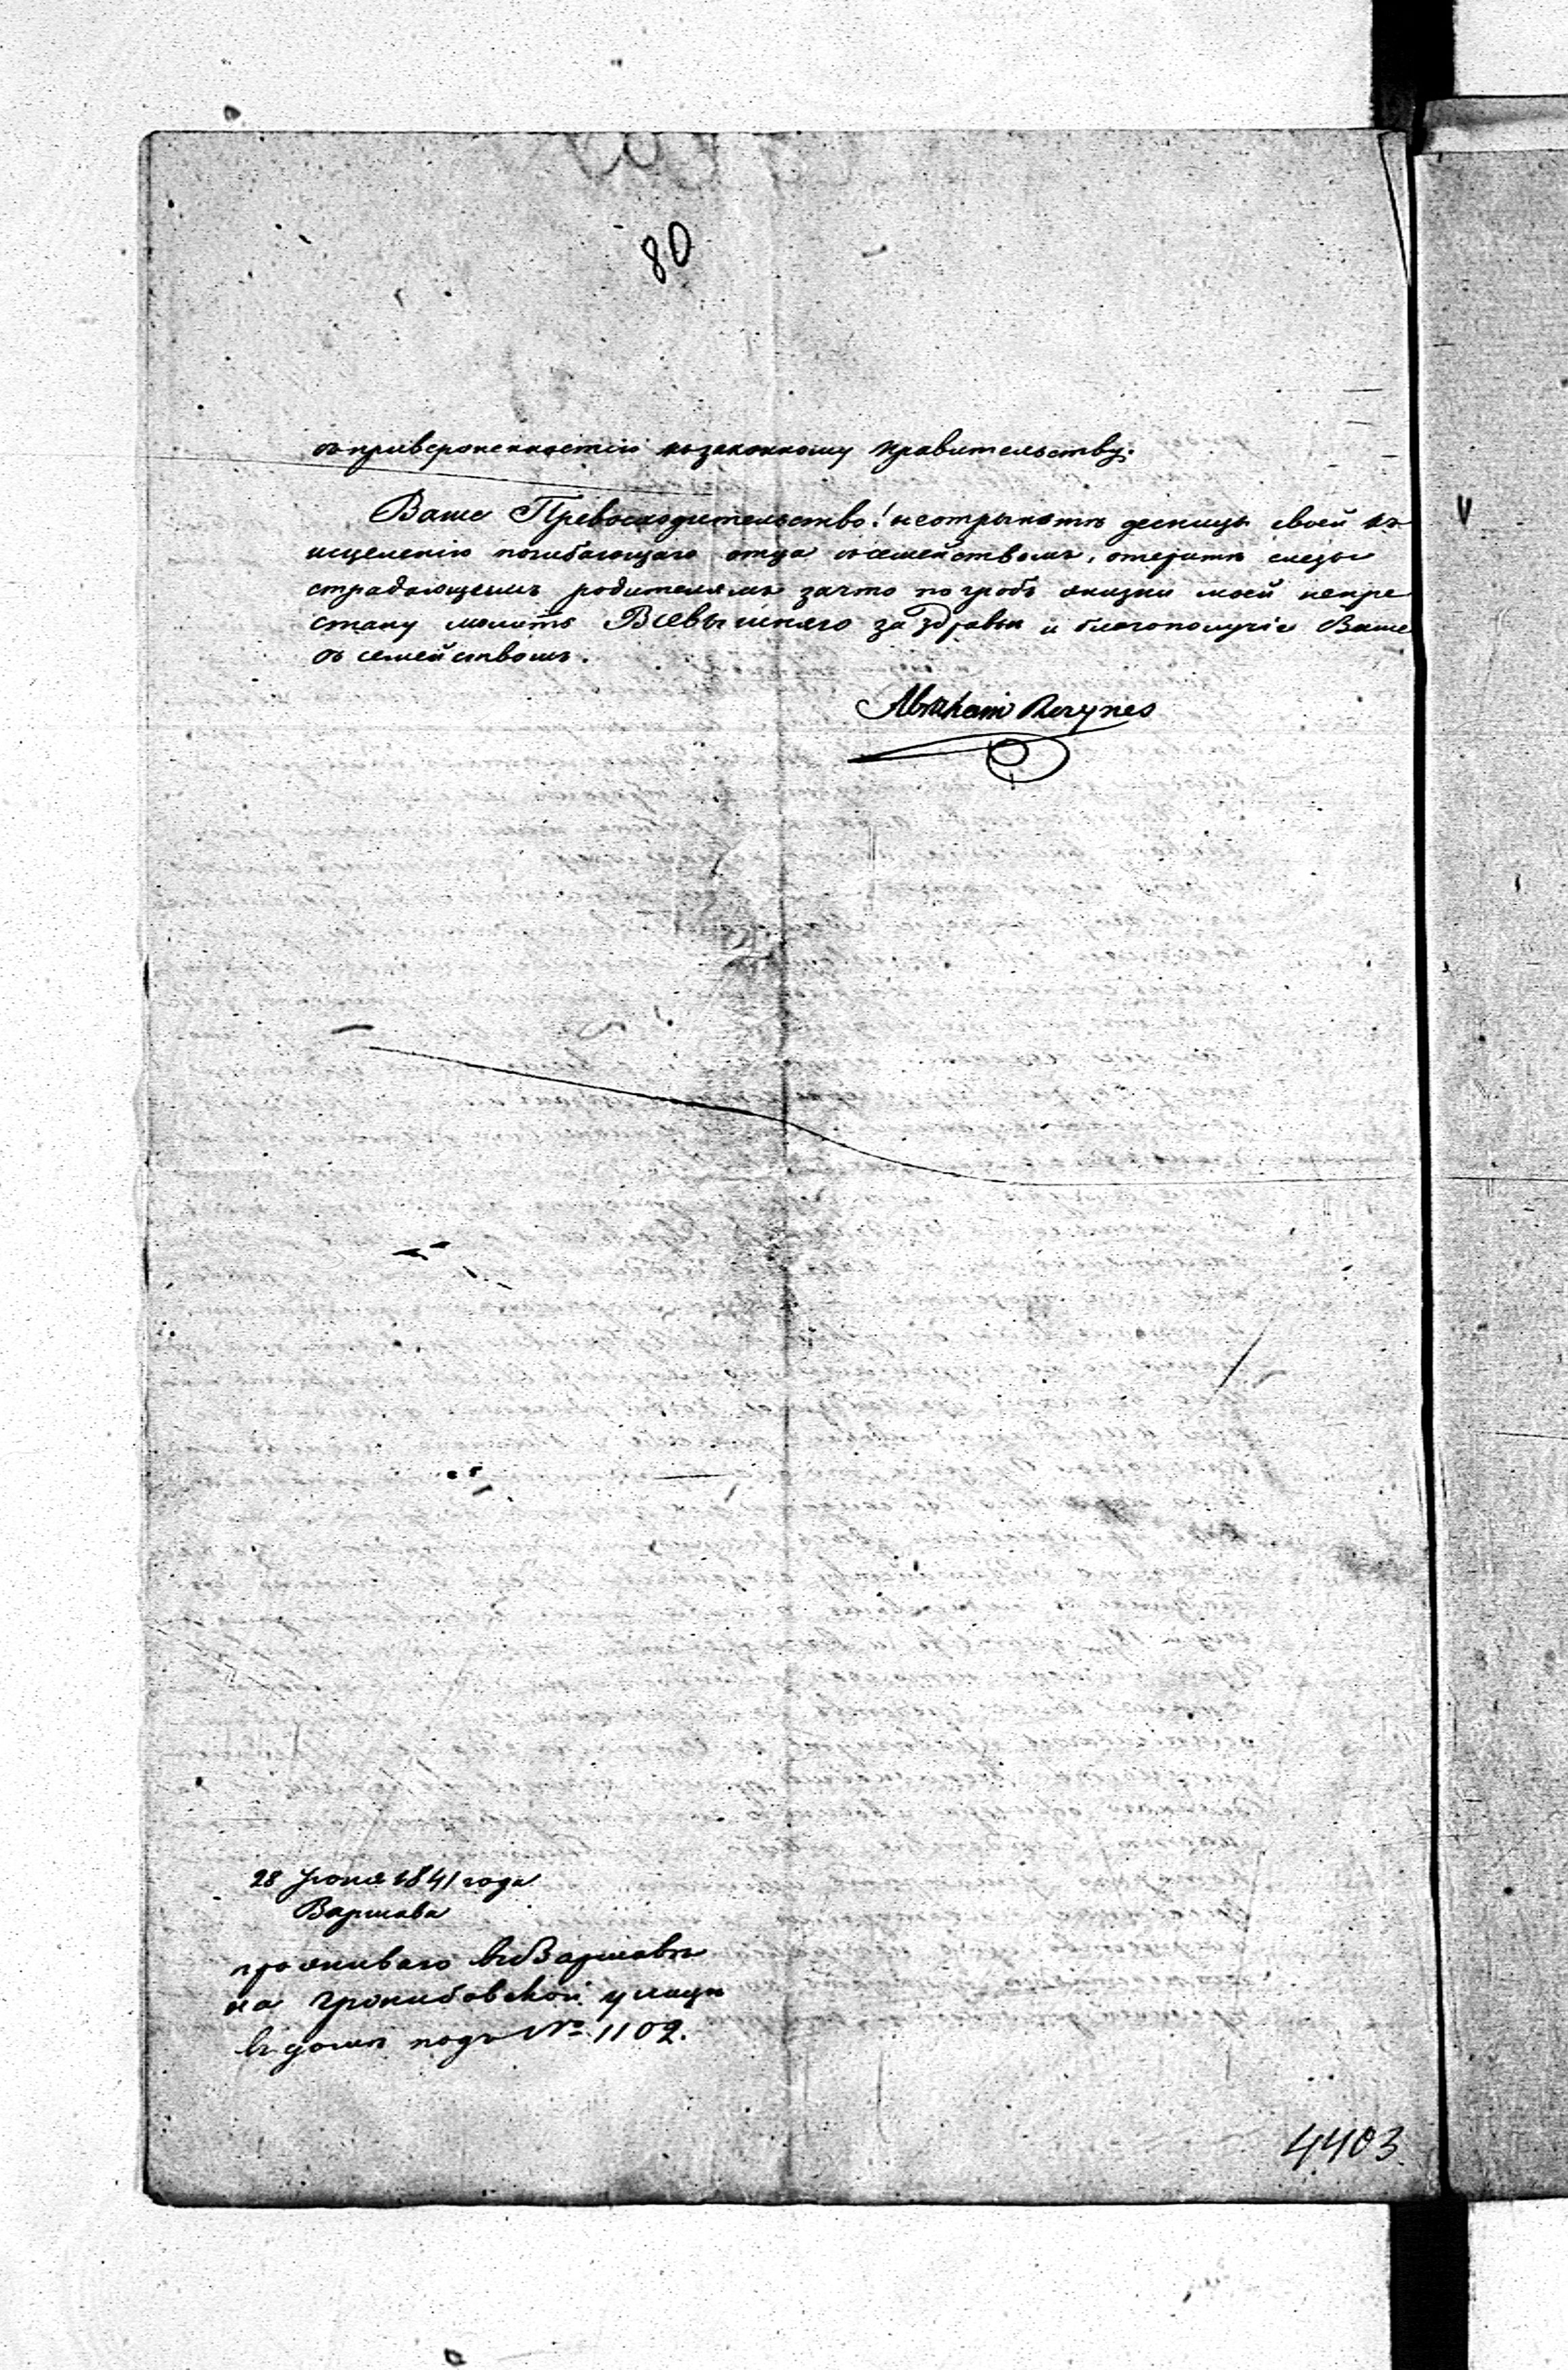 80
съ приверженностію къ законному правительству.
Ваше Превосходительство! неотрыньте десницы своей къ
исцеленію погибающаго отца съ семействомъ, отерите слезы
страдающимъ родителямъ зачто по гробъ жизни моей непре
стану молить Всевышняго за здравіи и благополучіе Ваше
съ семействомъ.
Abraham
28 Іюня 1841 года
Варшава
проживаю въ Варшавѣ
на Гржибовской улицѣ
въ домѣ подъ № 1102.
4403